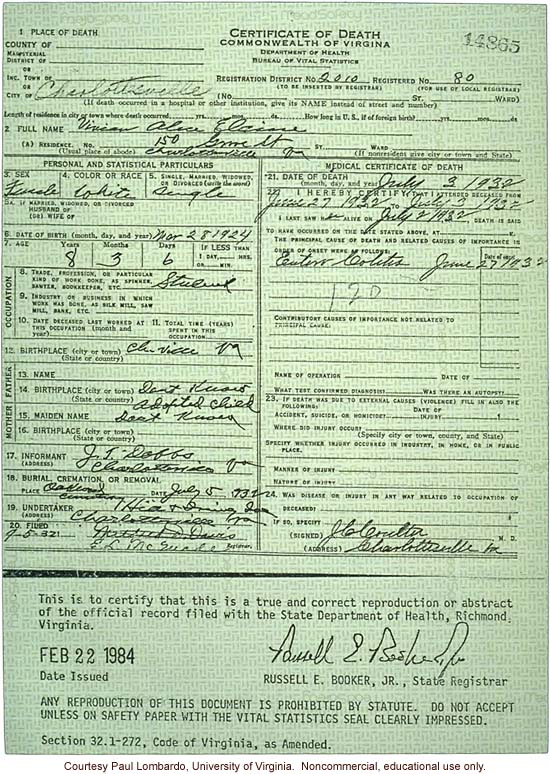 1 PLACE OF DEATH
CERTIFICATE OF DEATH
COUNTY OF
COMMONWEALTH OF VIRGINIA
14865
MAGISTERIAL
DISTRICT OF
DEPARTMENT OF HEALTH
BUREAU OF VITAL STATISTICS
OR
INC. TOWN OF
REGISTRATION DISTRICT NO. 2010 REGISTERED NO. 80
OR
(TO BE INSERTED BY REGISTRAR) (FOR USE OF LOCAL REGISTRAR)
CITY OF Charlottesville (No. ST. WARD)
(If death occurred in a hospital or other institution, give its NAME instead of street and number)
Length of residence in city or town where death occurred yrs. mos. ds. How long in U. S., if of foreign birth? yrs. mos. ds.
2. FULL NAME Vivian Alice Elaine
(A) RESIDENCE. NO. 150 Grove St ST. WARD
(Usual place of abode) Charlottesville Va (If nonresident give city or town and State)
PERSONAL AND STATISTICAL PARTICULARS
3. SEX 4. COLOR OR RACE 5. SINGLE, MARRIED, WIDOWED, OR DIVORCED (write the word)
Female White Single
5A. IF MARRIED, WIDOWED, OR DIVORCED
HUSBAND OF
(OR) WIFE OF
6. DATE OF BIRTH (month, day, and year) Mar 28 1924
7. AGE Years Months Days IF LESS THAN
8 3 6 1 DAY, HRS.
OR MIN.
OCCUPATION
8. TRADE, PROFESSION, OR PARTICULAR
KIND OF WORK DONE, AS SPINNER,
SAWYER, BOOKKEEPER, ETC. Student
9. INDUSTRY OR BUSINESS IN WHICH
WORK WAS DONE, AS SILK MILL, SAW
MILL, BANK, ETC.
10. DATE DECEASED LAST WORKED AT THIS OCCUPATION (month and year)
11. TOTAL TIME (YEARS) SPENT IN THIS OCCUPATION
12. BIRTHPLACE (city or town) Ch.ville Va
(State or country)
FATHER
13. NAME
14. BIRTHPLACE (city or town) Dont Know
(State or country) adopted child
MOTHER
15. MAIDEN NAME Dont Know
16. BIRTHPLACE (city or town)
(State or country)
17. INFORMANT J. T. Dobbs
(ADDRESS) Charlottesville Va
18. BURIAL, CREMATION, OR REMOVAL
PLACE Oakwood cemetery DATE July 5, 1932
19. UNDERTAKER Hill & Irving
(ADDRESS) Charlottesville Va
20. FILED
Registrar.
MEDICAL CERTIFICATE OF DEATH
21. DATE OF DEATH
(month, day, and year) July 3 1932
22. I HEREBY CERTIFY THAT I ATTENDED DECEASED FROM
June 27 1932 TO July 3 1932
I LAST SAW ALIVE ON July 2 1932, DEATH IS SAID
TO HAVE OCCURRED ON THE DATE STATED ABOVE, AT M.
THE PRINCIPAL CAUSE OF DEATH AND RELATED CAUSES OF IMPORTANCE IN
ORDER OF ONSET WERE AS FOLLOWS: Date of onset
Entero Colitis June 27 1932
120
CONTRIBUTORY CAUSES OF IMPORTANCE NOT RELATED TO
PRINCIPAL CAUSE:
NAME OF OPERATION DATE OF
WHAT TEST CONFIRMED DIAGNOSIS? WAS THERE AN AUTOPSY?
23. IF DEATH WAS DUE TO EXTERNAL CAUSES (VIOLENCE) FILL IN ALSO THE
FOLLOWING: DATE OF
ACCIDENT, SUICIDE, OR HOMICIDE? INJURY
WHERE DID INJURY OCCUR?
(Specify city or town, county, and State)
SPECIFY WHETHER INJURY OCCURRED IN INDUSTRY, IN HOME, OR IN PUBLIC
PLACE.
MANNER OF INJURY
NATURE OF INJURY
24. WAS DISEASE OR INJURY IN ANY WAY RELATED TO OCCUPATION OF
DECEASED?
IF SO, SPECIFY
(SIGNED) J C Coulter M. D.
(ADDRESS) Charlottesville Va
This is to certify that this is a true and correct reproduction or abstract
of the official record filed with the State Department of Health, Richmond,
Virginia.
FEB 22 1984
Russell E. Booker, Jr.
Date Issued
RUSSELL E. BOOKER, JR., State Registrar
ANY REPRODUCTION OF THIS DOCUMENT IS PROHIBITED BY STATUTE. DO NOT ACCEPT
UNLESS ON SAFETY PAPER WITH THE VITAL STATISTICS SEAL CLEARLY IMPRESSED.
Section 32.1-272, Code of Virginia, as Amended.
Courtesy Paul Lombardo, University of Virginia. Noncommercial, educational use only.